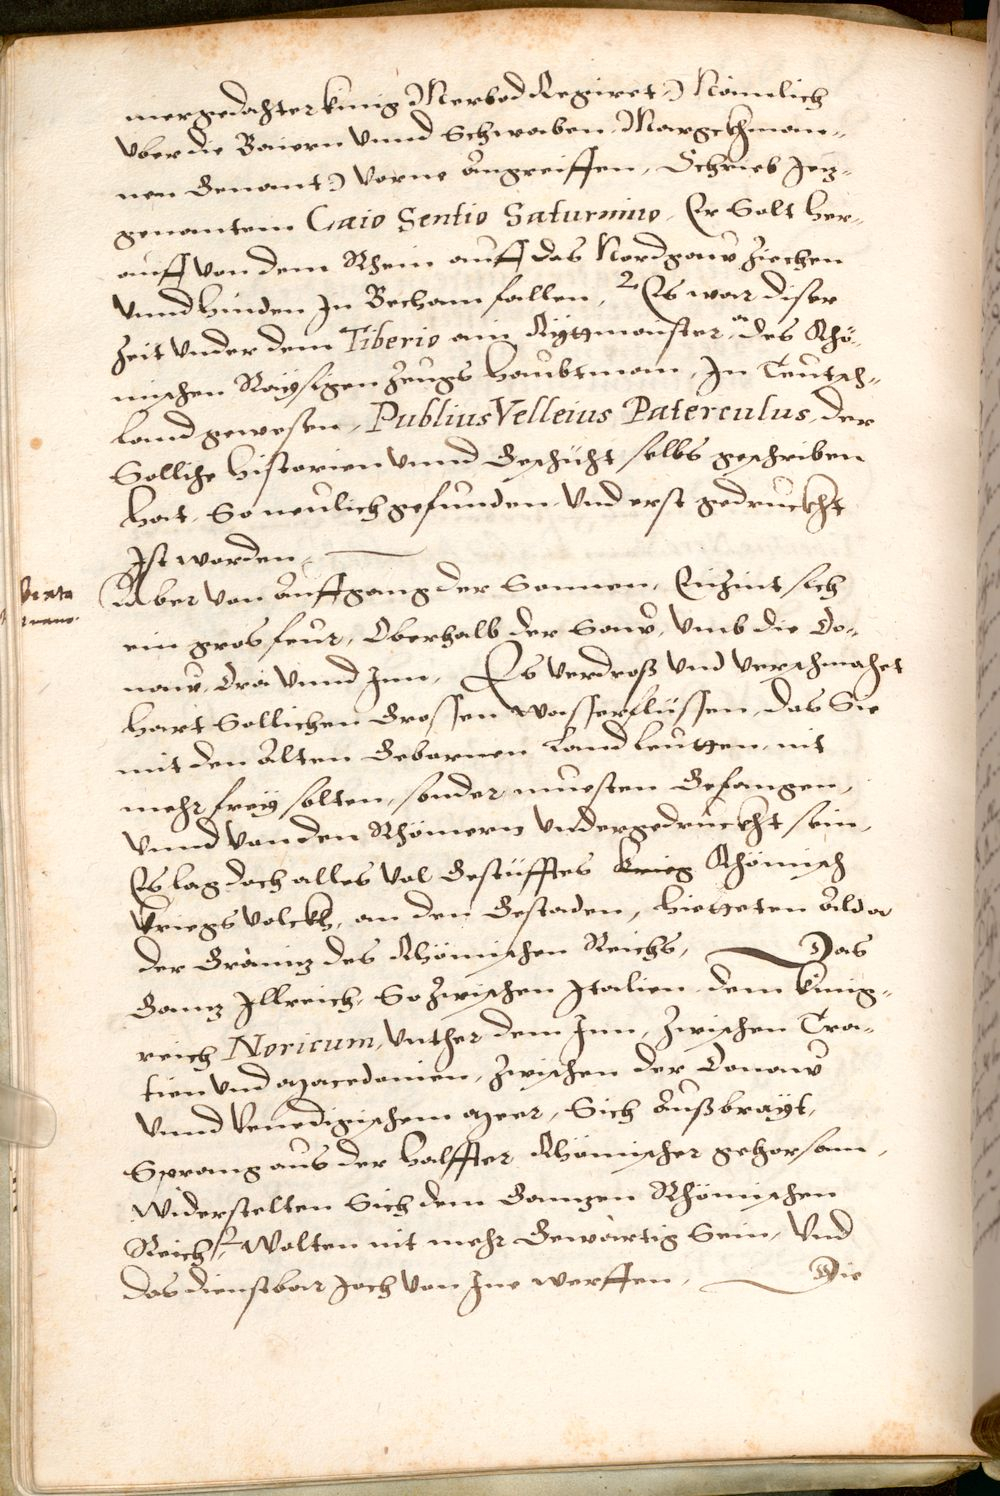 mergedachter künig Merbod Regiret) Nämlich
vber die Baiern vnnd Schwaben, Margckhman-
nen Genant) vorne angreiffen, Schrieb Jetz-
genantem Caio Sentio Saturnino, Er Solt her-
auff von dem Rhein auff das Nordgaw ziechen
vnnd hinden In Becham fallen, Es war diser
zeit vnder dem Tiberio ain Rÿttmaister, des Rhö-
mischen Raÿsigen zeugs haubtman, In Teutsch-
land gewesen, Publius Velleius Paterculus, der
Solliche historien vnnd Geschicht selbs geschriben
hat, So neulich gefunden, vnd erst gedruckht
Ist worden,
Aber von auffgang der Sonnen, Enzint sich
ein gros feur, Oberhalb der Saw, vmb die Do-
naw, Tra vnnd Inn, Es verdroß vnd verschmahet
hart Sollichen Grossen wasserflüssen, das Sie
mit den alten Gebornen landleutten, nit
mehr freÿ solten, sonder muesten Gefangen,
vnnd von den Rhömern vndergedruckht sein,
Es lag doch alles vol Gestüfftes krieg Rhömisch
kriegs volckh, an den Gestaden, hietteten alda
der Gräniz des Rhömischen Reichs, Das
Ganz Illreich, So zwischen Italien, dem künig-
reich Noricum, vnther dem Inn, zwischen Tra-
cien vnd Macedonien, zwischen der Donaw
vnnd Venedigischem Meer, Sich außbraÿt,
Sprang aus der halffter Rhömischer gehorsam,
widerstelten Sich dem Ganzen Rhömischen
Reich, wolten nit mehr Gewärtig Sein, vnd
das dienstbar Joch von Ine werffen, Die